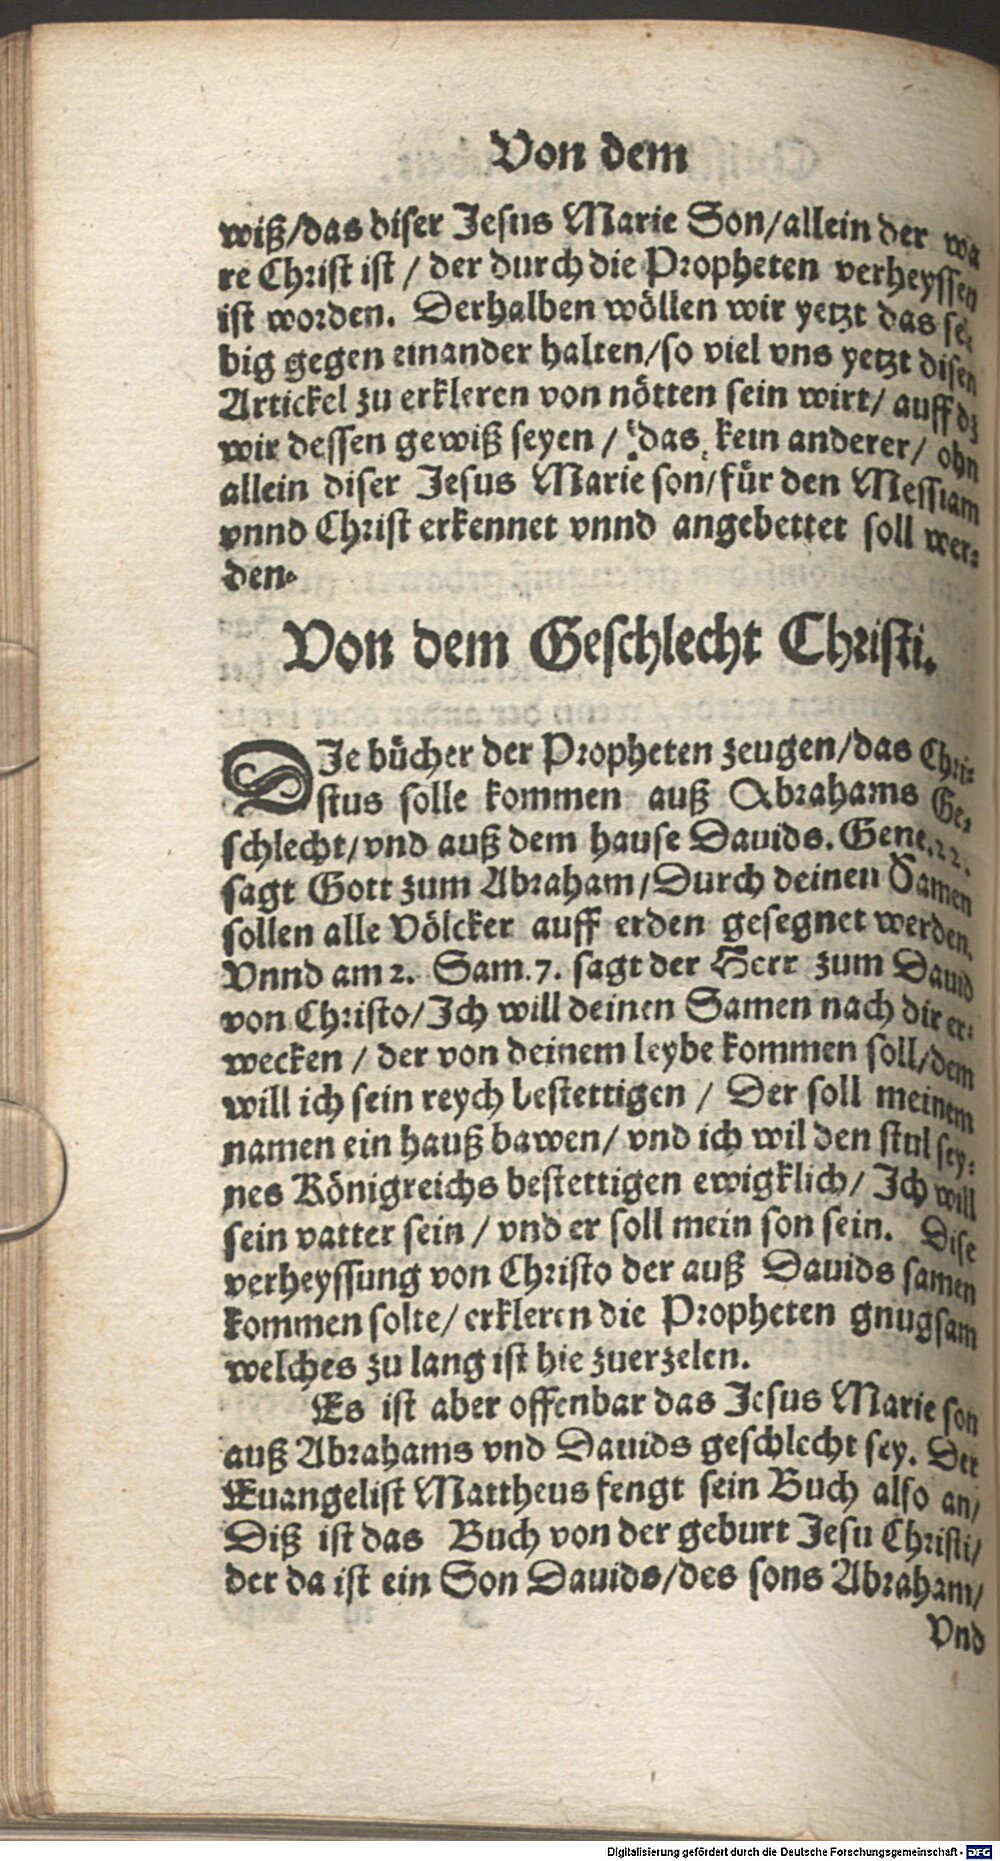 Von dem
wiß/das diser Jesus Marie Son/allein der wa
re Christ ist / der durch die Propheten verheyssen
ist worden. Derhalben wöllen wir yetzt das sel-
big gegen einander halten/so viel vns yetzt disen
Artickel zu erkleren von nötten sein wirt/ auff dz
wir dessen gewiß seyen / das kein anderer/ ohn
allein diser Jesus Marie son/für den Messiam
vnnd Christ erkennet vnnd angebettet soll wer-
den.
Von dem Geschlecht Christi.
DIe bücher der Propheten zeugen/das Chri-
stus solle kommen auß Abrahams Ge-
schlecht/vnd auß dem hause Dauids. Gene.22.
sagt Gott zum Abraham/Durch deinen Samen
sollen alle Völcker auff erden gesegnet werden.
Vnnd am 2. Sam.7. sagt der Herr zum Dauid
von Christo/Ich will deinen Samen nach dir er-
wecken / der von deinem leybe kommen soll/dem
will ich sein reych bestettigen / Der soll meinem
namen ein hauß bawen/ vnd ich wil den stul sey-
nes Königreichs bestettigen ewigklich/ Ich will
sein vatter sein / vnd er soll mein son sein. Dise
verheyssung von Christo der auß Dauids samen
kommen solte/ erkleren die Propheten gnugsam
welches zu lang ist hie zuerzelen.
Es ist aber offenbar das Jesus Marie son
auß Abrahams vnd Dauids geschlecht sey. Der
Euangelist Mattheus fengt sein Buch also an/
Diß ist das Buch von der geburt Jesu Christi/
der da ist ein Son Dauids/des sons Abraham/
Vnd
Digitalisierung gefördert durch die Deutsche Forschungsgemeinschaft - DFG